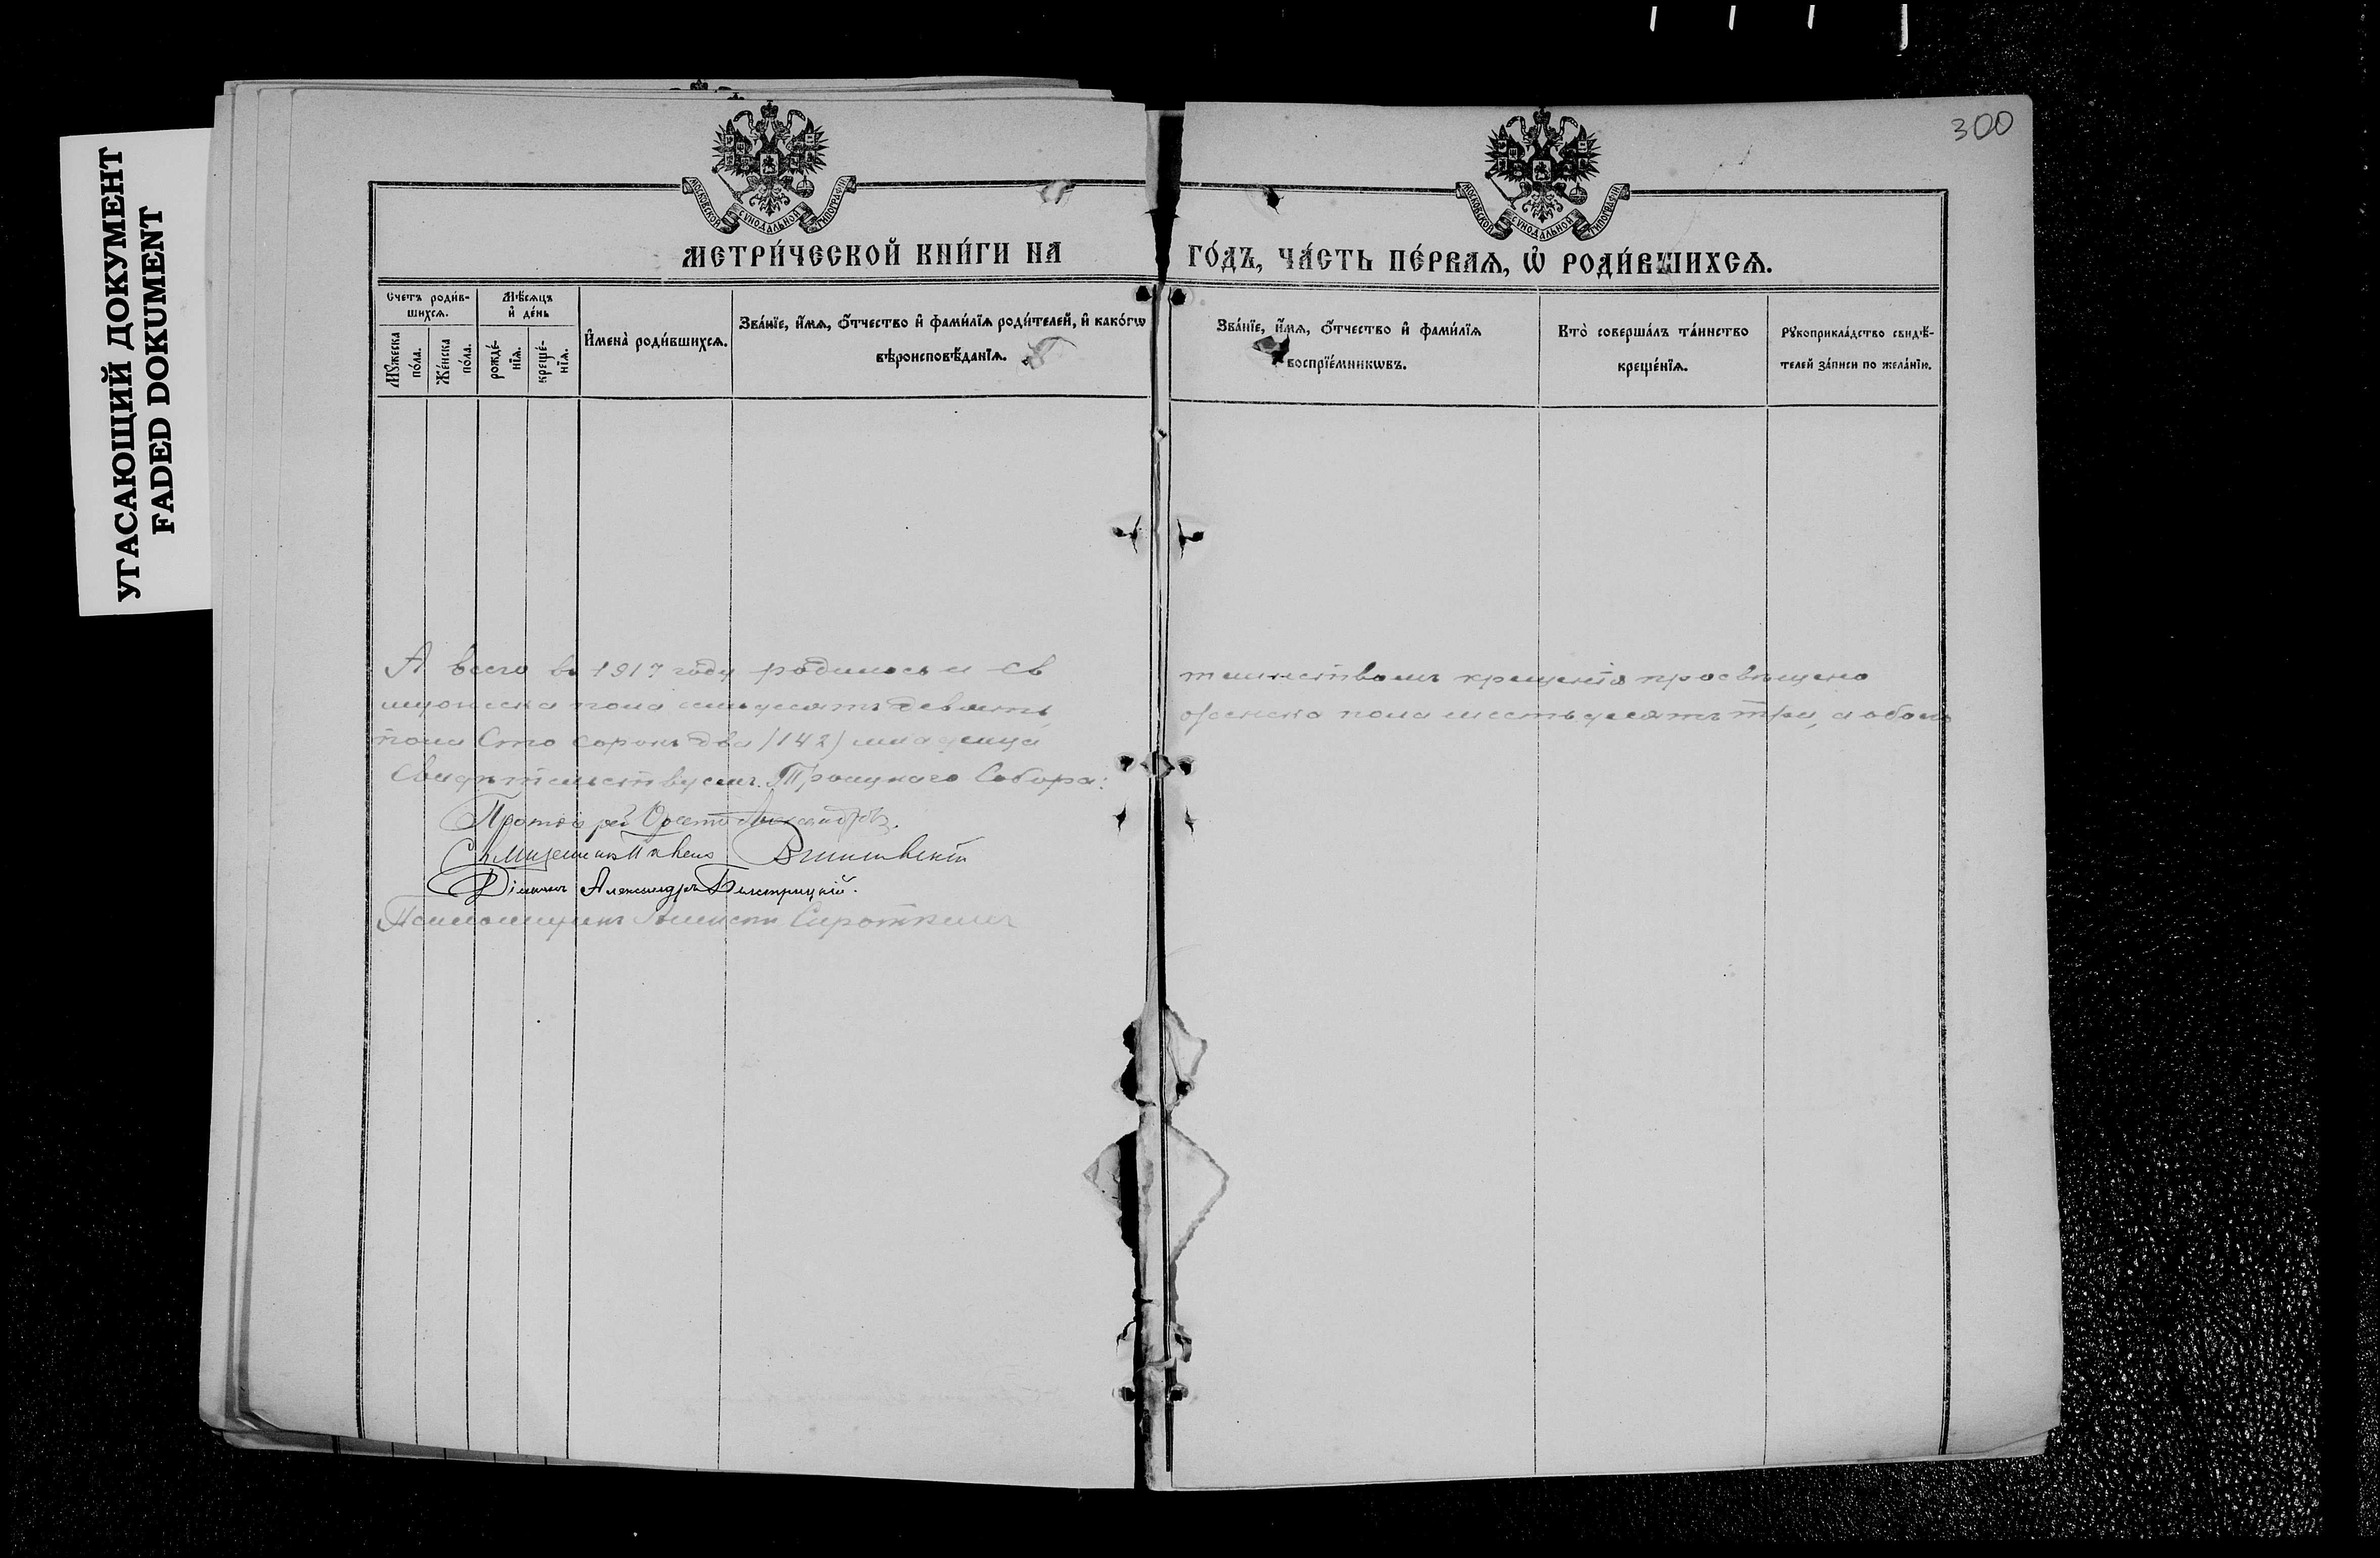 УГАСАЮЩИЙ ДОКУМЕНТ
FADED DOKUMENT
300
МОСКОВСКОЙ СѴНОДАЛЬНОЙ ТИПОГРАФІИ
МОСКОВСКОЙ СѴНОДАЛЬНОЙ ТИПОГРАФІИ
МЕТРИ́ЧЕСКОЙ КНИ́ГИ НА ГО́ДЪ, ЧА́СТЬ ПЕ́РВАЯ, Ѡ РОДИ́ВШИХСЯ.
Счетъ роди́вшихся.
Мꙋ́жеска по́ла.
Же́нска по́ла.
Мѣ́сяцъ и де́нь
рожде́нїя.
креще́нїя.
Имена̀ роди́вшихся.
Зва́нїе, и́мя, о́тчество и фами́лїя роди́телей, и како́гѡ
вѣроисповѣ́данїя.
Зва́нїе, и́мя, о́тчество и фами́лїя
воспрїе́мникѡвъ.
Кто̀ соверша́лъ та́инство
креще́нїя.
Рꙋкоприкла́дство свидѣ́-
телей за́писи по жела́нїю.
А всего въ 1917 году родилось и св таинствомъ крещенія просвѣщено
мужеска пола семьдесятъ девять, женска пола шестьдесятъ три, а обоего
пола сто сорокъ два (142) младенца
Свидѣтельствуемъ. Троицкаго Собора:
Протоіерей Орестъ Александровъ.
Священникъ Павелъ
Діаконъ Александръ Быстрицкій.
Псаломщикъ Алексѣй Сироткинъ